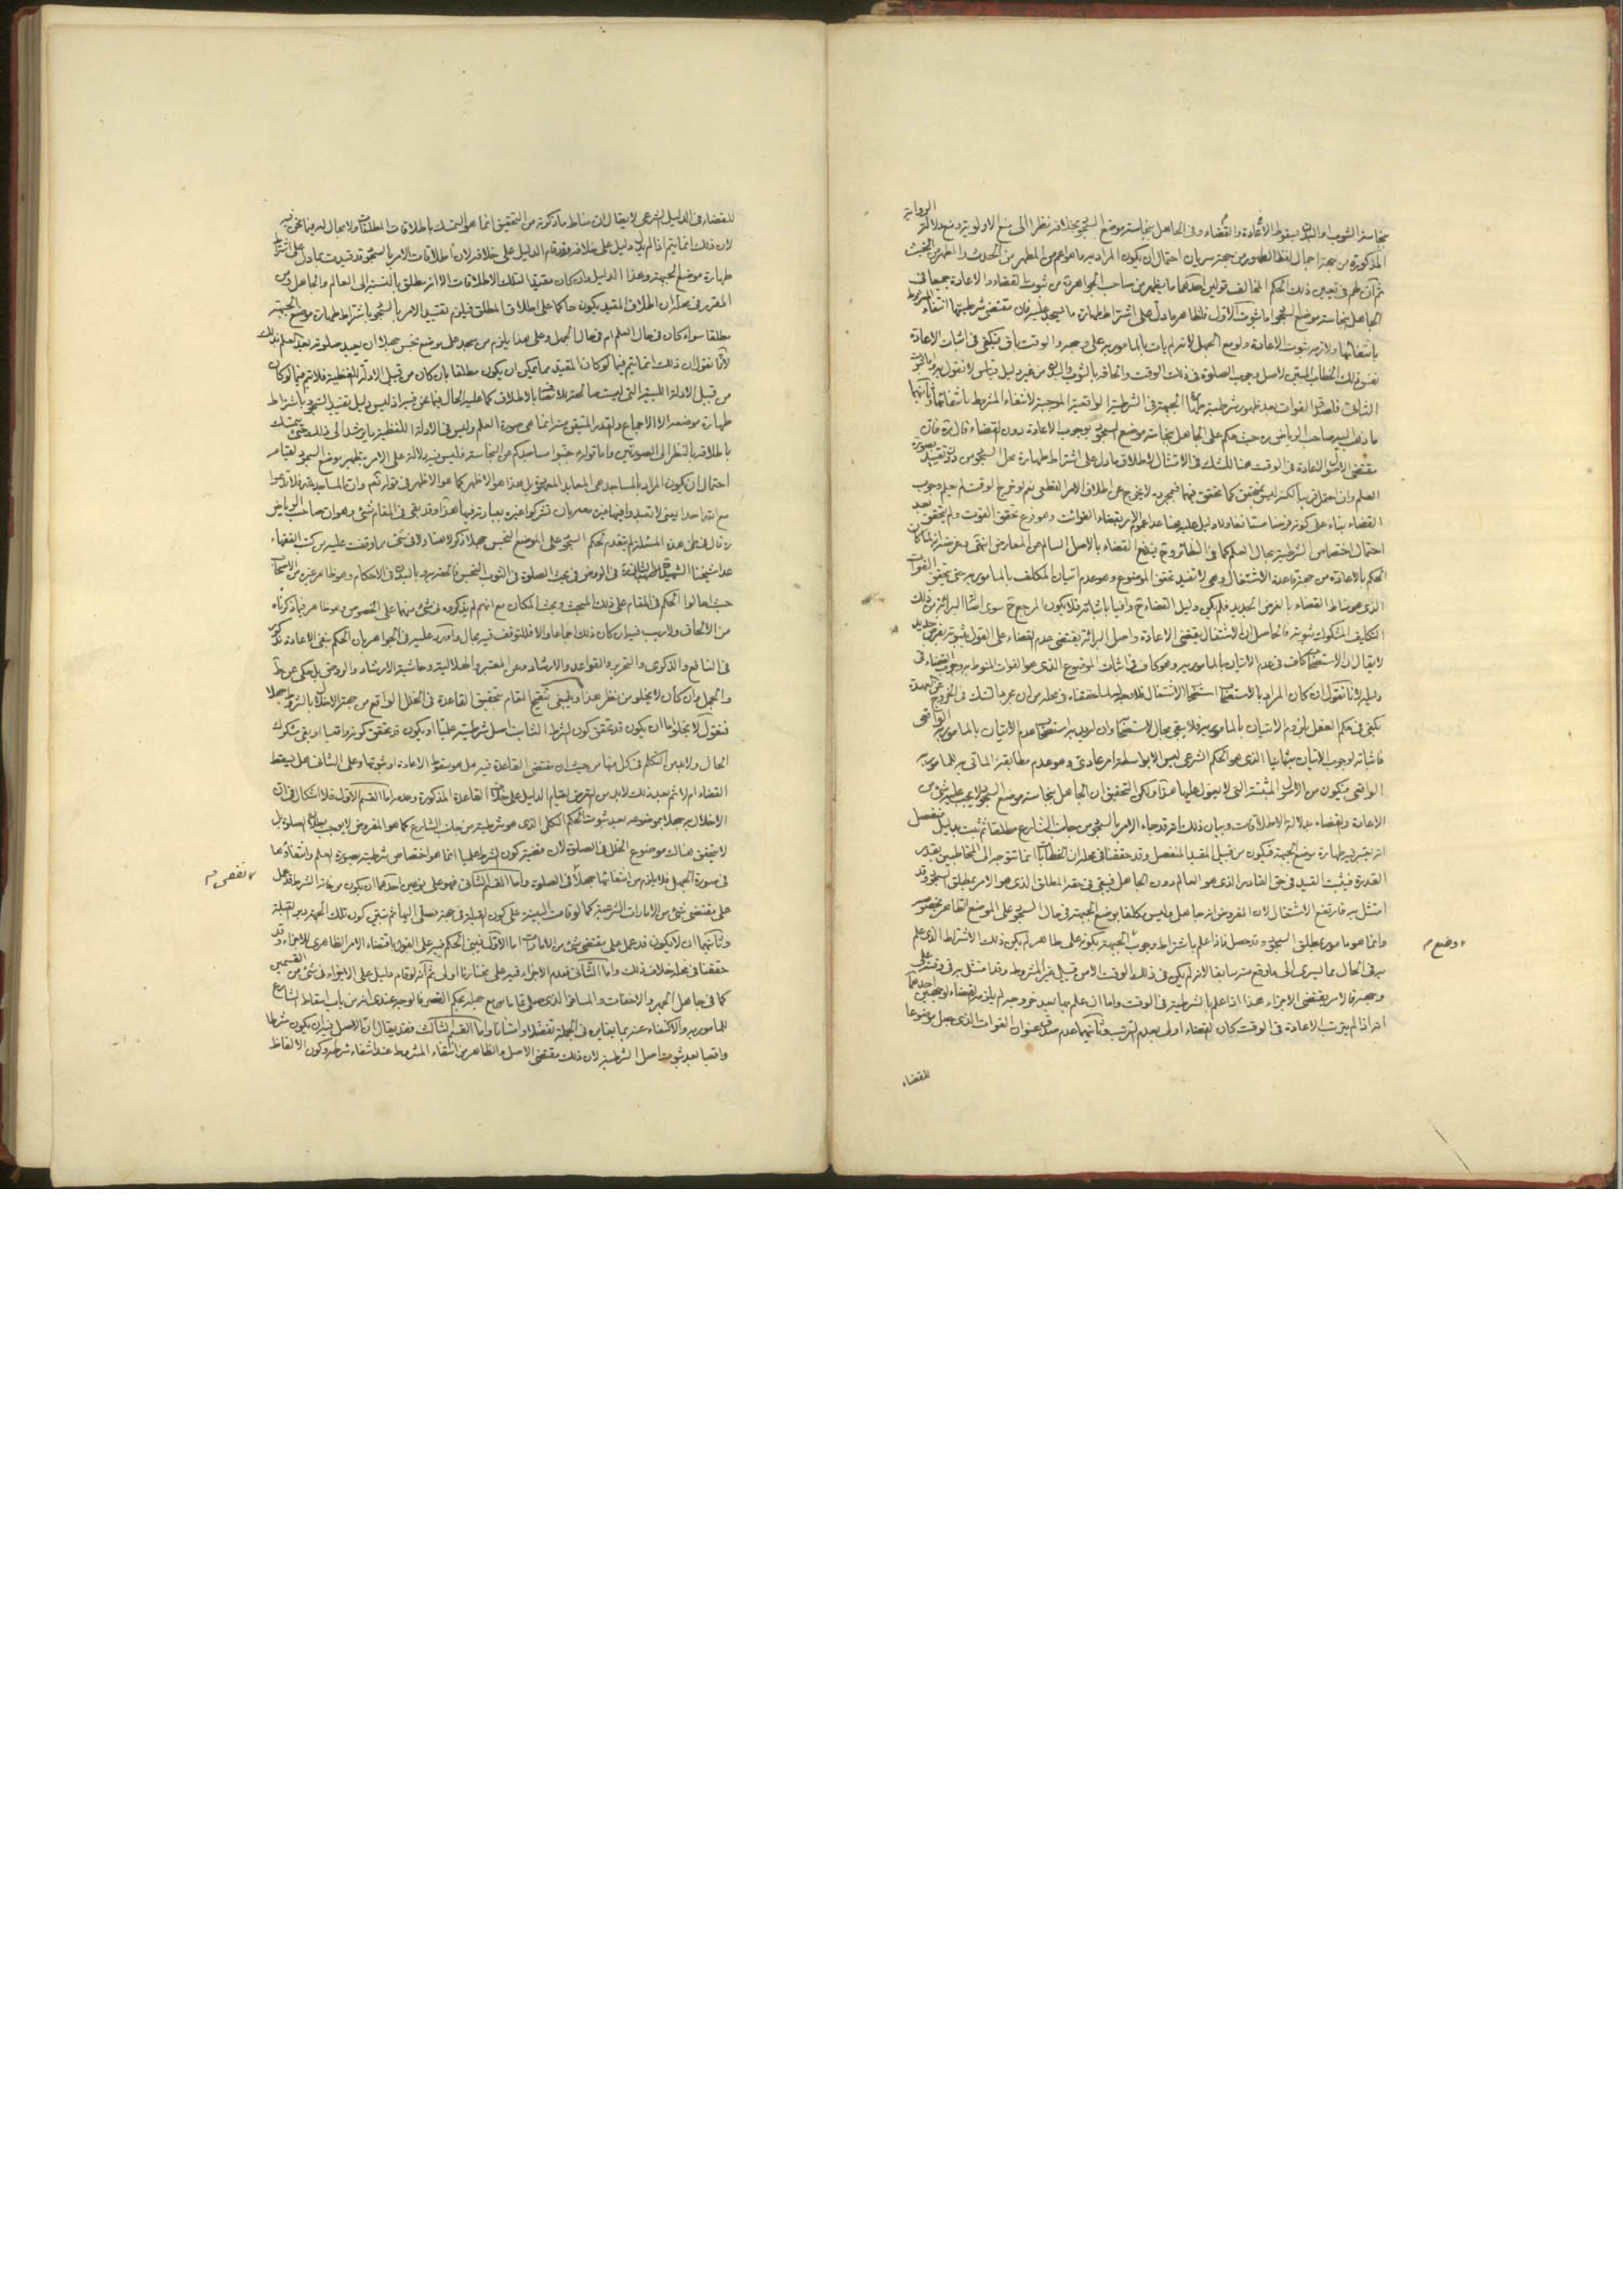 نجاسة الثوب والبدن بسقوط الاعادة والقضاء وفى الجاهل بنجاسة موضع السجود بخلافه نظرا الى منع الاولوية ومنع دلالة الرواية
المذكورة من جهة اجمال لفظ الطهور من جهة سريان احتمال ان يكون المراد به ما هو اعم من المطهر من الحدث والمطهر من الخبث
ثم ان لهم فى تعيين ذلك الحكم المخالف قولين احدهما ما يظهر من صاحب الجواهر ره من ثبوت القضاء والاعادة جميعا فى
الجاهل بنجاسة موضع السجود اما ثبوت الاول فلظاهر ما دل على اشتراط طهارة ما يسجد عليه فان مقتضى شرطيتها انتفاء المشروط
بانتفائها ولازمه ثبوت الاعادة ولو مع الجهل لانه لم يات بالمامور به على وجهه والوقت باق فيكفى فى اثبات الاعادة
نفس ذلك الخطاب المبقى لاصل وجوب الصلوة فى ذلك الوقت والحاقه بالثوب والبدن من غير دليل قياس لا نقول به واما ثبوت
الثانى فلصدق الفوات بعد ظهور شرطية طهارة الجبهة فى الشرطية الواقعية الموجبة لانتفاء المشروط بانتفائها وثانيهما
ما ذهب اليه صاحب الرياض ره حيث حكم على الجاهل بنجاسة موضع السجود بوجوب الاعادة دون القضاء قال ره فان
مقتضى الاصول الاعادة فى الوقت هنا للشك فى الامتثال لاطلاق ما دل على اشتراط طهارة محل السجود من دون تقييد بصورة
العلم وان احتمل قريبا لكنه ليس بمتحقق كما تحقق فيها فبمجرده لا يخرج عن اطلاق الامر القطعى نعم لو خرج الوقت لم يعلم وجوب
القضاء بناء على كونه فرضا مستانفا ولا دليل عليه هنا عدا عموم الامر بقضاء الفوائت وهو فرع تحقق الفوت ولم يتحقق بعد
احتمال اختصاص الشرطية بحال العلم كما فى النظائر وح يدفع القضاء بالاصل السالم عن المعارض انتهى وغرضه انه لما كان
الحكم بالاعادة من جهة قاعدة الاشتغال وهى لا تفيد تحقق الموضوع وهو عدم اتيان المكلف بالمامور به حتى يتحقق الفوات
الذى هو مناط القضاء بالفرض الجديد فلم يكن دليل القضاء ح وافيا باثباته فلا يكون المرجع ح سوى اصالة البرائة من ذلك
التكليف المشكوك ثبوته فالحاصل ان الاشتغال يقتضى الاعادة واصل البرائة يقتضى عدم القضاء على القول بثبوته بفرض جديد
لا يقال ان الاستصحاب كاف فى عدم الاتيان بالمامور به وهو كاف فى اثبات الموضوع الذى هو الفوات المنوط به وجوب القضاء فى
دليله لانا نقول ان كان المراد بالاستصحاب استصحاب الاشتغال فلا مجال له لما حققناه فى محله من ان مجرد الشك فى الخروج عن العهدة
يكفى فى حكم العقل بلزوم الاتيان بالمامور به فلا يبقى مجال للاستصحاب وان اريد به استصحاب عدم الاتيان بالمامور به الواقعى
فاثباته لوجوب الاتيان به ثانيا الذى هو الحكم الشرعى ليس الا بواسطة امر عادى وهو عدم مطابقة الماتى به للمامور به
الواقعى فيكون من الاصول المثبتة التى لا يعول عليها هذا ولكن التحقيق ان الجاهل بنجاسة موضع السجود لا يجب عليه شئ من
الاعادة والقضاء بدلالة الاطلاقات وبيان ذلك انه قد جاء الامر بالسجود من جانب الشارع مطلقا ثم ثبت بدليل منفصل
انه يعتبر فيه طهارة موضع الجبهة فيكون من قبيل المقيد المنفصل وقد حققنا فى محله ان الخطابات انما تتوجه الى المخاطبين بقدر
القدرة فيثبت القيد فى حق القادر الذى هو العالم دون الجاهل فيبقى فى حقه المطلق الذى هو الامر بمطلق السجود وقد
امتثل به فارتفع الاشتغال لان المفروض انه جاهل وليس مكلفا بوضع الجبهة فى حال السجود على الموضع الطاهر بخصوصه
وانما هو مامور بمطلق السجود وقد حصل فاذا علم باشتراط وجوب الجبهة بكونه على طاهر لم يكن ذلك الاشتراط الذى علم
به فى الحال مما يسرى الى ما وقع منه سابقا لانه لم يكن فى ذلك الوقت الا من قبيل غير المشروط وقد امتثل به فى وقته على
وجهه فالامر يقتضى الاجزاء هذا اذا علم بالشرطية فى الوقت واما ان علم بها بعد خروجه لم يلزمه القضاء لوجهين احدهما
انه اذا لم يترتب الاعادة فى الوقت كان القضاء اولى بعدم الترتب وثانيهما عدم صدق عنوان الفوات الذى جعل موضوعا
وضع م
للقضاء
للقضاء فى الدليل الشرعى لا يقال ان مناط ما ذكرته من التحقيق انما هو التمسك باطلاقات المطلقات ولا مجال له فيما نحن فيه
لان ذلك انما يتم اذا لم يدل دليل على خلافه وقد قام الدليل على خلافه لان اطلاقات الامر بالسجود قد قيدت بما دل على اشتراط
طهارة موضع الجبهة وهذا الدليل وان كان مقيدا لتلك الاطلاقات الا انه مطلق بالنسبة الى العالم والجاهل ومن
المقرر فى محله ان اطلاق المقيد يكون حاكما على اطلاق المطلق فيلزم تقييد الامر بالسجود باشتراط طهارة موضع الجبهة
مطلقا سواء كان فى حال العلم ام فى حال الجهل وعلى هذا يلزم من سجد على موضع نجس جهلا ان يعيد صلوته بعد العلم بذلك
لانا نقول ان ذلك انما يتم فيما لو كان المقيد مما يمكن ان يكون مطلقا بان كان من قبيل الادلة اللفظية فلا يتم فيما لو كان
من قبيل الادلة اللبية التى ليست صالحة للاتصاف بالاطلاق كما عليه الحال فيما نحن فيه اذ ليس دليل تقييد السجود باشتراط
طهارة موضعه الا الاجماع والقدر المتيقن منه انما هى صورة العلم وليس فى الادلة اللفظية ما يرشد الى ذلك حتى يتمسك
باطلاقه بالنظر الى الصورتين واما قوله جنبوا مساجدكم عن النجاسة فليس فيه دلالة على الامر بتطهير موضع السجود لقيام
احتمال ان يكون المراد بالمساجد هى المعابد المعهودة بل هذا هو الاظهر كما هو الاظهر فى قوله تعم وان المساجد لله فلا تدعوا
مع الله احدا يعنى لا تعبدوا فيها غيره معه بان تشركوا غيره بعبادته فيها هذا وقد بقى فى المقام شئ وهو ان صاحب الرياض
ره قال فى طى هذه المسئلة لم يتقدم لحكم السجود على الموضع النجس جهلا ذكر لا هنا ولا فى شئ مما وقفت عليه من كتب الفقهاء
عدا شيخنا الشهيد الثانى فى الروض فى بحث الصلوة فى الثوب النجس فالحقه به وبالبدن فى الاحكام وهو ظاهر غيره من الاصحاب
حيث احالوا الحكم فى المقام على ذلك المبحث وبحث المكان مع انهم لم يذكروه فى شئ منهما على الخصوص وهو ظاهر فيما ذكرناه
من الالحاق ولا ريب فيه ان كان ذلك اجماعا والا فللتوقف فيه مجال واورد عليه فى الجواهر بان الحكم بنفى الاعادة مذكور
فى النافع والذكرى والتحرير والقواعد والارشاد وعن المعتبر والهلالية وحاشية الارشاد والروض بل حكى عن ط
والجمل وان كان لا يخلو من نظر هذا وينبغى تنقيح المقام بتحقيق القاعدة فى الخلل الواقع من جهة الاخلال بالشروط جهلا
فنقول لا يخلو اما ان يكون قد تحقق كون الشرط الثابت اصل شرطيته علميا او يكون قد تحقق كونه واقعيا او بقى مشكوك
الحال ولا بد من التكلم فى كل منها من حيث ان مقتضى القاعدة فيه هل هو سقوط الاعادة او ثبوتها وعلى الثانى هل يسقط
القضاء ام لا ثم بعد ذلك لا بد من التعرض لقيام الدليل على خلاف القاعدة المذكورة وعدمه اما القسم الاول فلا اشكال فى ان
الاخلال به جهلا بموضوعه بعد ثبوت الحكم الكلى الذى هو شرطيته من جانب الشارع كما هو المفروض لا يوجب بطلان الصلوة بل
لا يتحقق هناك موضوع الخلل فى الصلوة لان قضية كون الشرط علميا انما هو اختصاص شرطيته بصورة العلم وانتفاؤها
فى صورة الجهل فلا يلزم من انتفائها جهلا فى الصلوة واما القسم الثانى فهو على نوعين احدهما ان يكون من هذا الشرط قد عمل
على مقتضى شئ من الامارات الشرعية كما لو قامت البينة على كون القبلة فى جهة فصلى اليها ثم تبين كون تلك الجهة دبر القبلة
وثانيهما ان لا يكون قد عمل على مقتضى شئ من الامارات اما الاول فيبنى الحكم فيه على القول باقتضاء الامر الظاهرى للاجزاء وقد
حققنا فى محله خلاف ذلك واما الثانى فعدم الاجزاء فيه على مختارنا اولى ثم انه لو قام دليل على الاجزاء فى شئ من القسمين
كما فى جاهل الجهر والاخفات والمسافر الذى صلى تماما مع جهله بحكم القصر فالوجه عندى انه من باب اسقاط الشارع
للمامور به والاكتفاء عنه بما يغايره فى الجملة تفضلا وامتنانا واما القسم الثالث فقد يقال ان الاصل فيه ان يكون شرطا
واقعيا بعد ثبوت اصل الشرطية لان ذلك مقتضى الاصل والظاهر من انتفاء المشروط عند انتفاء شرطه وكون الالفاظ
نقص م